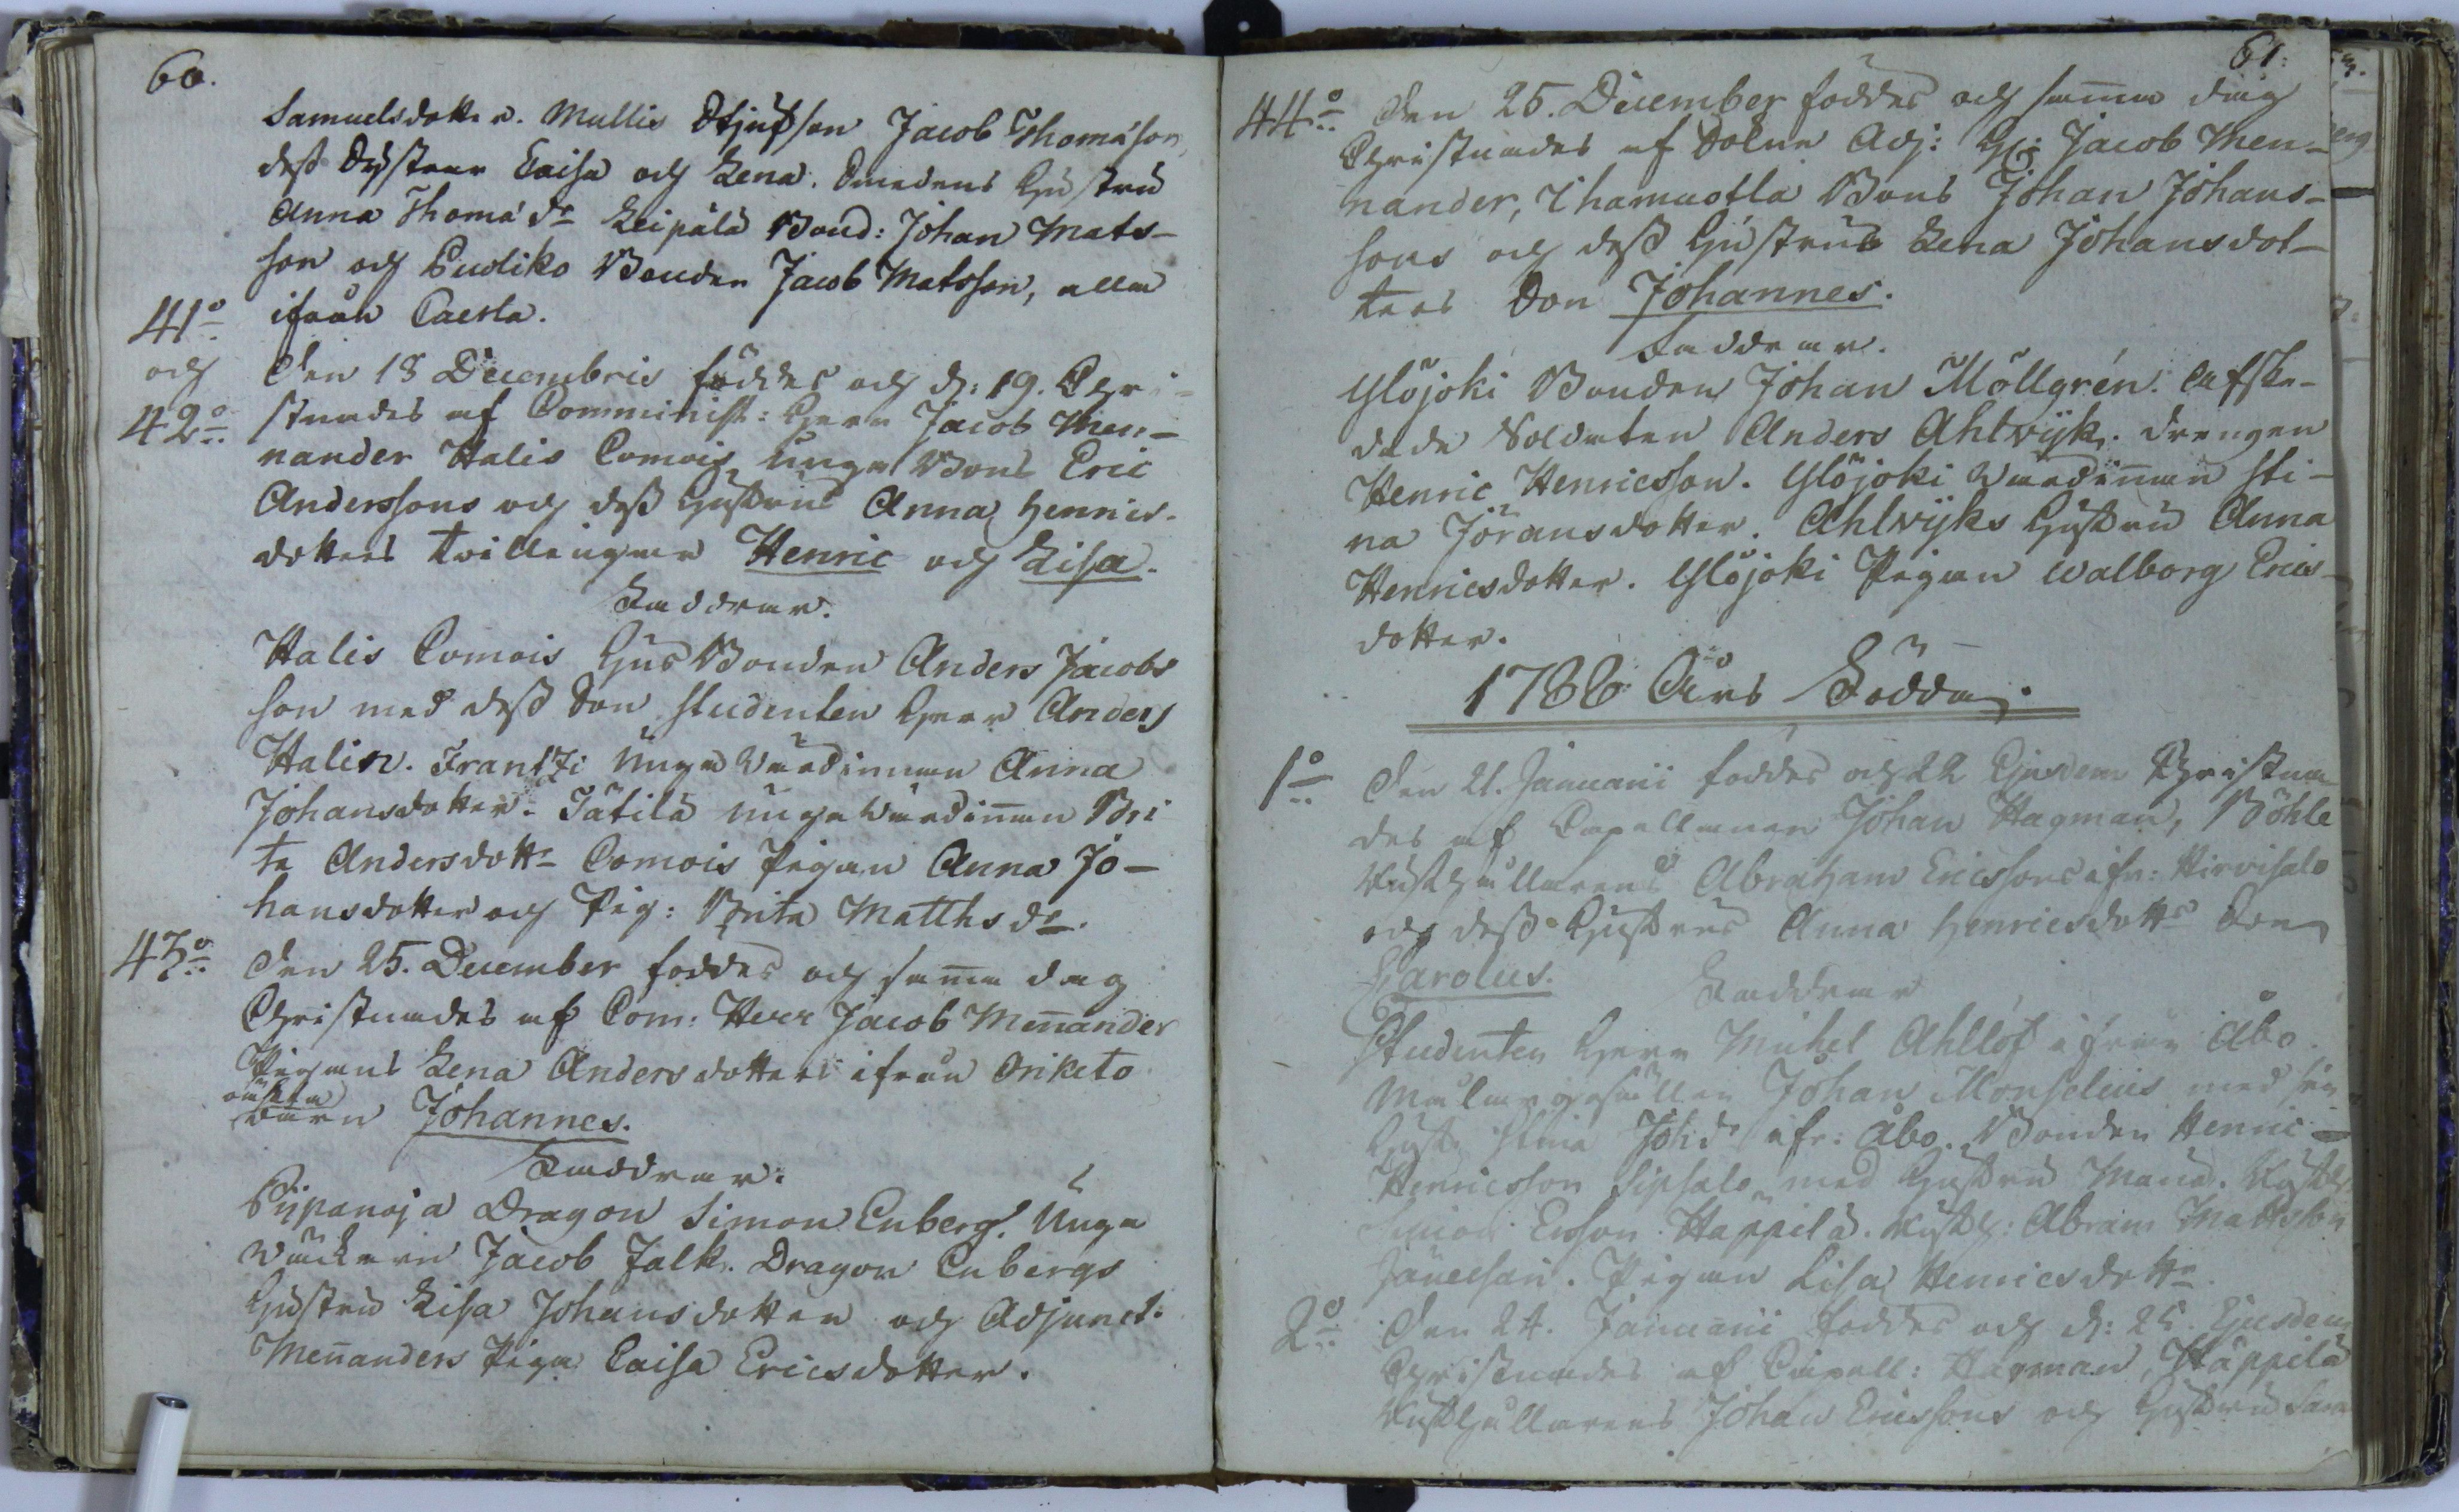 60.
Samuelsdotter. Mullis Stjufson Jacob Thomasson,
dess Systrar Caisa och Lena. Smedens Hustru
Anna Thomæ dr Leipälä Bond: Johan Mats-
son och Pudiko Bonden Jacob Matsson, alla
ifrån Caerla.
41o
och
42o
Den 18 Decembris föddes och d: 19. Chri-
stnades af Comminist: Herr Jacob Men-
nander Halis Comois unga Bons Eric
Anderssons och dess Hustrus Anna Henrics-
dotters tvillingar Henric och Lisa.
Faddrar.
Halis Comois Husbonden Anders Jacobs
son med dess Son Studenten Herr Anders
Halin. Frantzi Unga Värdinnan Anna
Johansdotter. Tätilä unga Värdinnan Bri
ta Andersdottr Comois Pigan Anna Jo-
hansdotter och Pig: Brita Matths dr.
43o Den 25. December föddes och samma dag
Christnades af Com: Herr Jacob Mennander
Pigans Lena Andersdotters ifrån Oriketo
oächta
barn Johannes.
Faddrar.
Pijpanoja Dragon Simon Enberg. Unga
Jacob Falk. Dragon Enbergs
Hustru Lisa Johansdotter och Adjunct.
Mennanders Piga Caisa Ericsdotter.
61.
44o Den 25. December föddes och samma dag
Christnades af Solne Adj: H: Jacob Men-
nander, Ihamuotla Bons Johan Johans-
sons och dess Hustrus Lena Johansdot-
ters Son Johannes.
Faddrar.
Ylöjoki Bonden Johan Möllgrén. Afske-
dade Soldaten Anders Ahlwijk. Drengen
Henric Henricsson. Ylöjoki Värdinnan Sti-
na Jöransdotter. Ahlwijks Hustru Anna
Henricsdotter. Ylöjoki Pigan Walborg Erics-
dotter.
1786 Års Födda.
1o Den 21. Januarii föddes och 22 Ejusdem Christna
des af Capellanen Johan Hagman, Böhle
Rusthållarens Abraham Ericssons ifr: Hirvisalo
och dess Hustrus Anna Henricsdottrs Son
Carolus.
Faddrar
Studenten Herr Michel Ahllöf ifrån Åbo.
Målaregesällen Johan Monselius med sin
Hust. Stina Johdr ifr: Åbo. Bonden Henric
Henricsson Sipsalo med Hustru Maria. Rusth:
Ersson Happilä. Rusth: Abram Mattsson
Pigan Lisa Henricsdottr.
2o Den 24. Januarii föddes och d: 25. Ejusdem
Christnades af Capell: Hagman, Häppilä
Rusthållarens Johan Ericssons och Hustrus